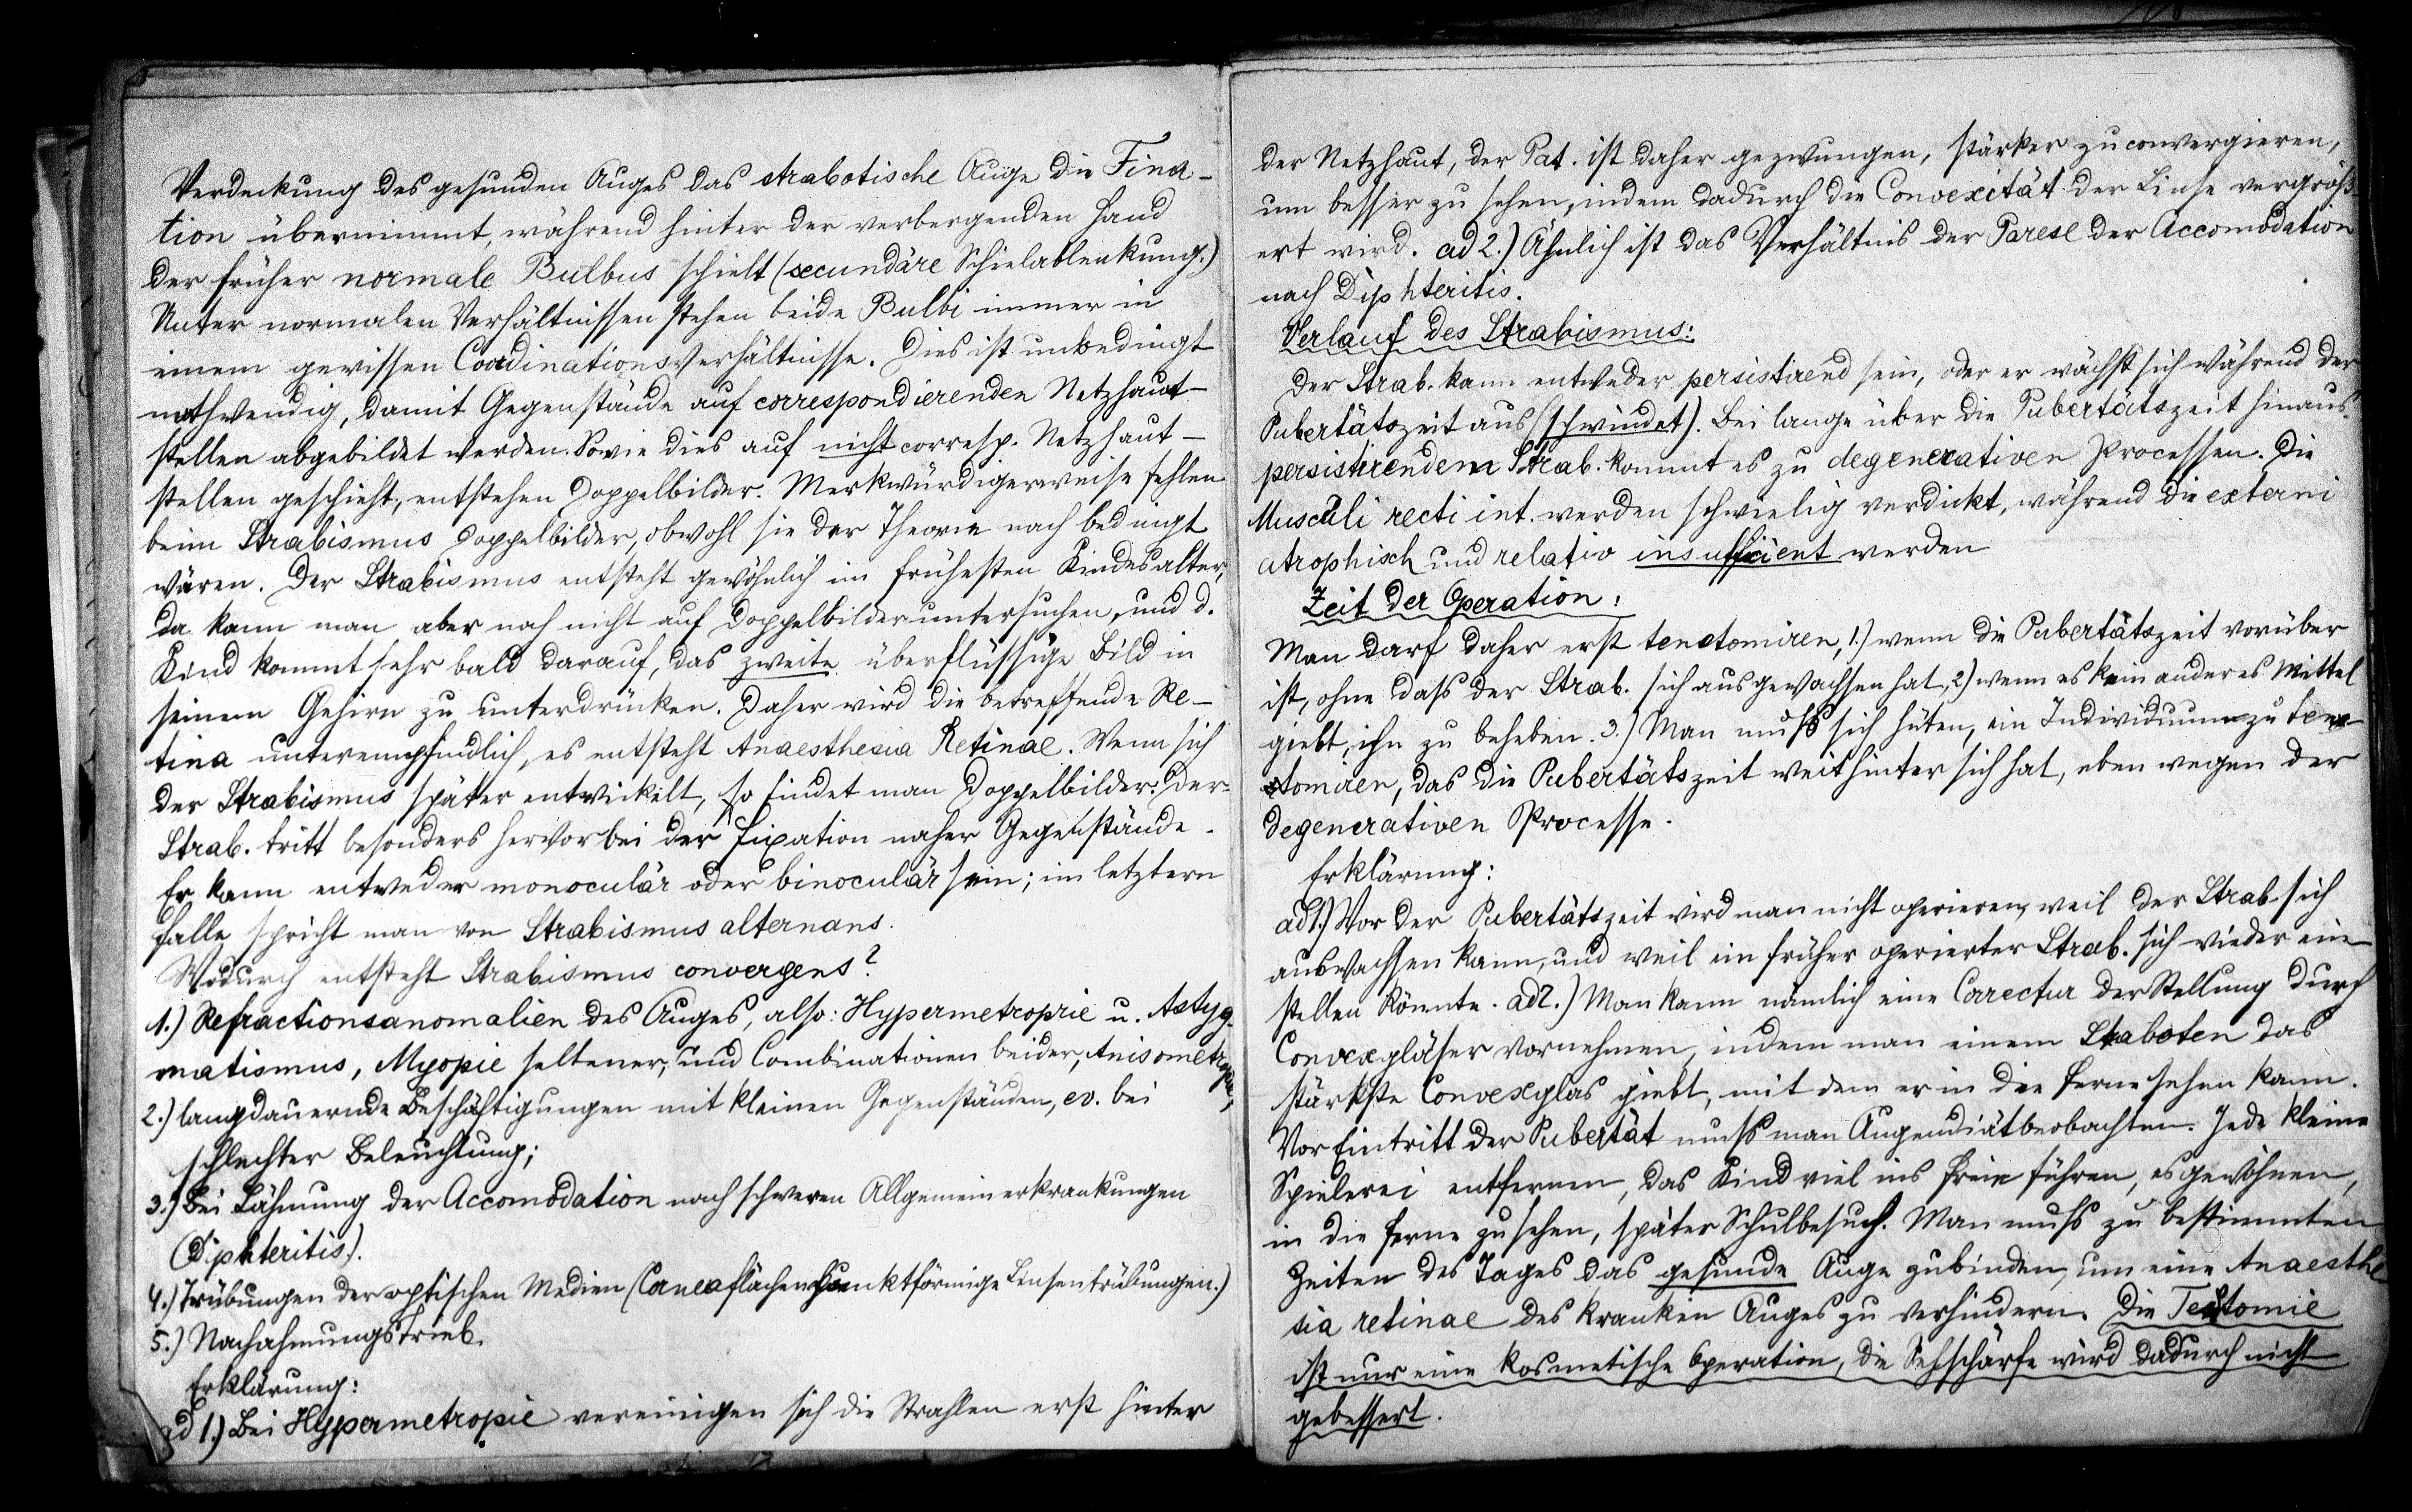 Verdeckung des gesunden Auges das strabotische Auge die Fixa-
tion übernimmt, während hinter der verbergenden Hand
der früher normale Bulbus schielt (secundäre Schielablenkung.)
Unter normalen Verhältnissen stehen beide Bulbi immer in
einem gewissen Coordinationsverhältnisse. Dies ist unbedingt
nothwendig, damit Gegenstände auf correspondierenden Netzhaut-
stellen abgebildet werden. Sowie dies auf nicht corresp. Netzhaut-
stellen geschieht, entstehen Doppelbilder. Merkwürdigerweise fehlen
beim Strabismus Doppelbilder, obwohl sie der Theorie nach bedingt
wären. Der Strabismus entsteht gewöhnlich im frühesten Kindesalter,
da kann man aber noch nicht auf Doppelbilder untersuchen, und d.
Kind kommt sehr bald darauf, das zweite überflüssige Bild in
seinem Gehirn zu unterdrücken. Daher wird die betreffende Re-
tina unterempfindlich, es entsteht Anaesthesia Retinae. Wenn sich
der Strabismus später entwickelt, so findet man Doppelbilder. Der
Strab. tritt besonders hervor bei der Fixation naher Gegenstände.
Er kann entweder monoculär oder binoculär sein; im letztern
Falle spricht man von Strabismus alternans.
Wodurch entsteht Strabismus convergens?
1.) Refractionsanomalien des Auges, also: Hypermetropie u. Astyg-
matismus, Myopie seltener, und Combinationen beider, Anisometropie,
2.) langdauernde Beschäftigungen mit kleinen Gegenständen, ev. bei
schlechter Beleuchtung;
3.) Bei Lähmung der Accomodation nach schweren Allgemeinerkrankungen
(Diphteritis).
4.) Trübungen der optischen Medien (Corneaflächen punktförmige Linsentrübungen.)
5.) Nachahmungstrieb.
Erklärung:
ad 1.) Bei Hypermetropie vereinigen sich die Strahlen erst hinter
der Netzhaut, der Pat. ist daher gezwungen, stärker zu convergieren,
um besser zu sehen, indem dadurch die Convexität der Linse vergröß-
ert wird. ad 2.) Ähnlich ist das Verhältnis der Parese der Accomodation
nach Diphteritis.
Verlauf des Strabismus:
Der Strab. kann entweder persistirend sein, oder er wächst sich während der
Pubertätszeit aus (schwindet). Bei lange über die Pubertätszeit hinaus
persistirendem Strab. kommt es zu degenerativen Processen. Die
Musculi recti int. werden schwielig verdickt, während die externi
atrophisch und relativ insufficient werden
Zeit der Operation:
Man darf daher erst tenotomiren, 1.) wenn die Pubertätszeit vorüber
ist, ohne dass der Strab. sich ausgewachsen hat, 2) wenn es kein anderes Mittel
giebt, ihn zu beheben. 3.) Man muß sich hüten, ein Individuum zu teno-
tomiren, das die Pubertätszeit weit hinter sich hat, eben wegen der
degenerativen Processe.
Erklärung:
ad 1.) Vor der Pubertätszeit wird man nicht operieren, weil der Strab. sich
auswachsen kann, und weil ein früher operierter Strab. sich wieder ein
stellen könnte. ad 2.) Man kann nämlich eine Carectur der Stellung durch
Convexgläser vornehmen, indem man einem Straboten das
stärkste Convexglas giebt, mit dem er in die Ferne sehen kann.
Vor Eintritt der Pubertät muß man Augendiät beobachten. Jede kleine
Spielerei entfernen, das Kind viel ins Freie führen, es gewöhnen,
in die Ferne zu sehen, später Schulbesuch. Man muß zu bestimmten
Zeiten des Tages das gesunde Auge zubinden, um eine Anaesthe
sia retinae des kranken Auges zu verhindern. Die Testomie
ist nur eine kosmetische Operation, die Sehschärfe wird dadurch nicht
gebessert.